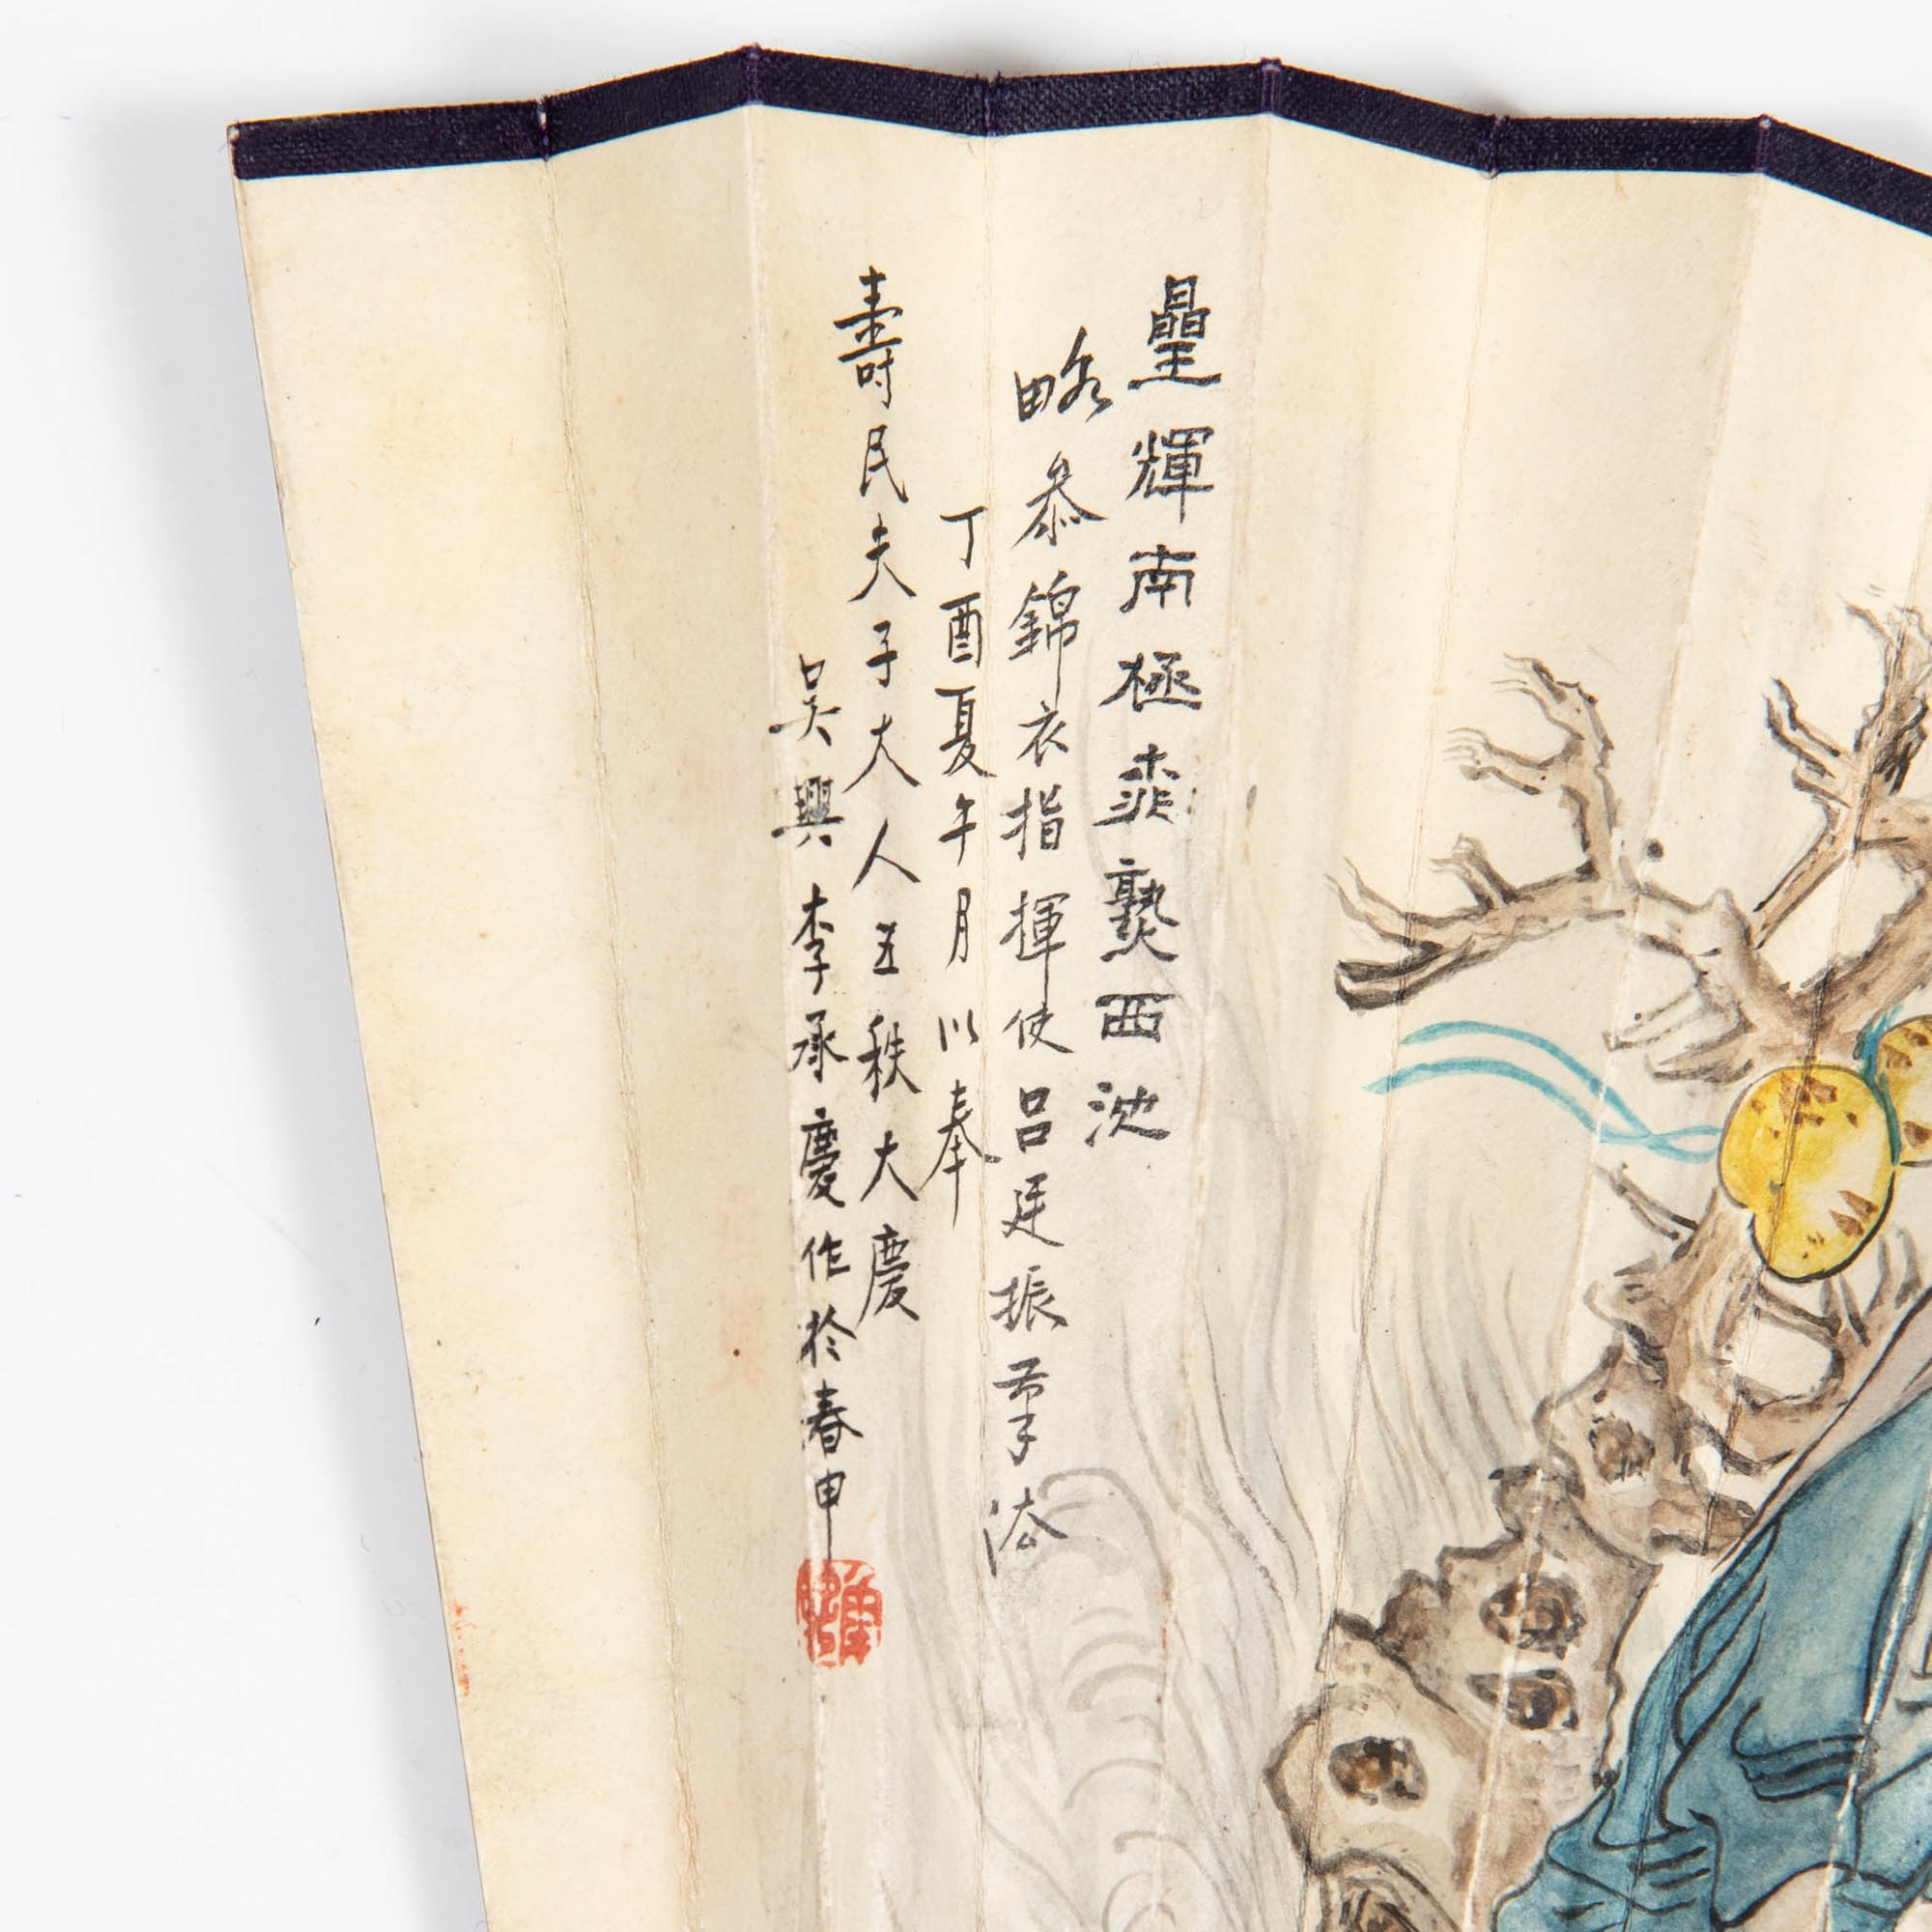 曐輝南極桃熟西池
略叅錦衣指揮使呂廷振法
丁酉夏午月以奉
壽民夫子大人五秩大慶
吳興李承慶作於春申